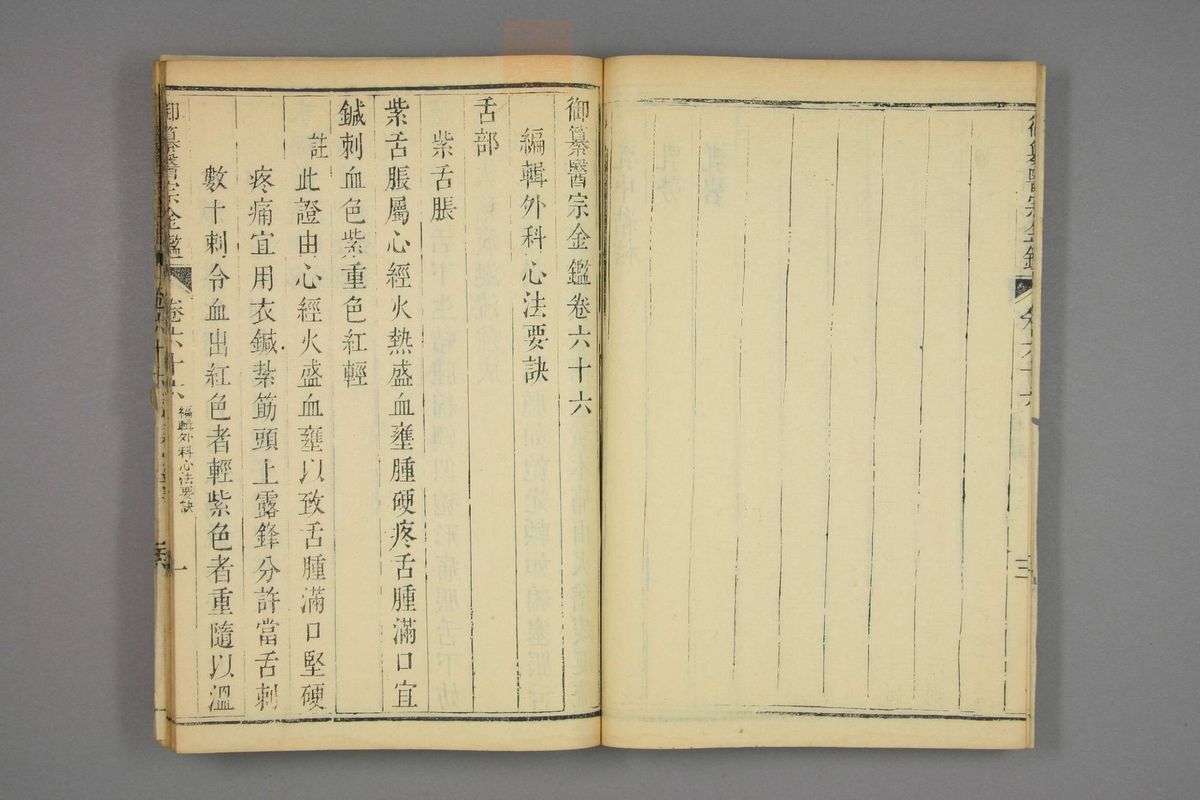 御纂醫宗金鑑卷六十六
編輯外科心法要訣
舌部
紫舌脹
紫舌脹屬心經火熱盛血壅腫硬疼舌腫滿口宜
鍼刺血色紫重色紅輕
註此證由心經火盛血壅以致舌腫滿口堅硬
疼痛宜用衣鍼紮筯頭上露鋒分許當舌刺
數十刺令血出紅色者輕紫色者重隨以溫
御纂醫宗金鑑 卷六十六 編輯外科心法要訣 一